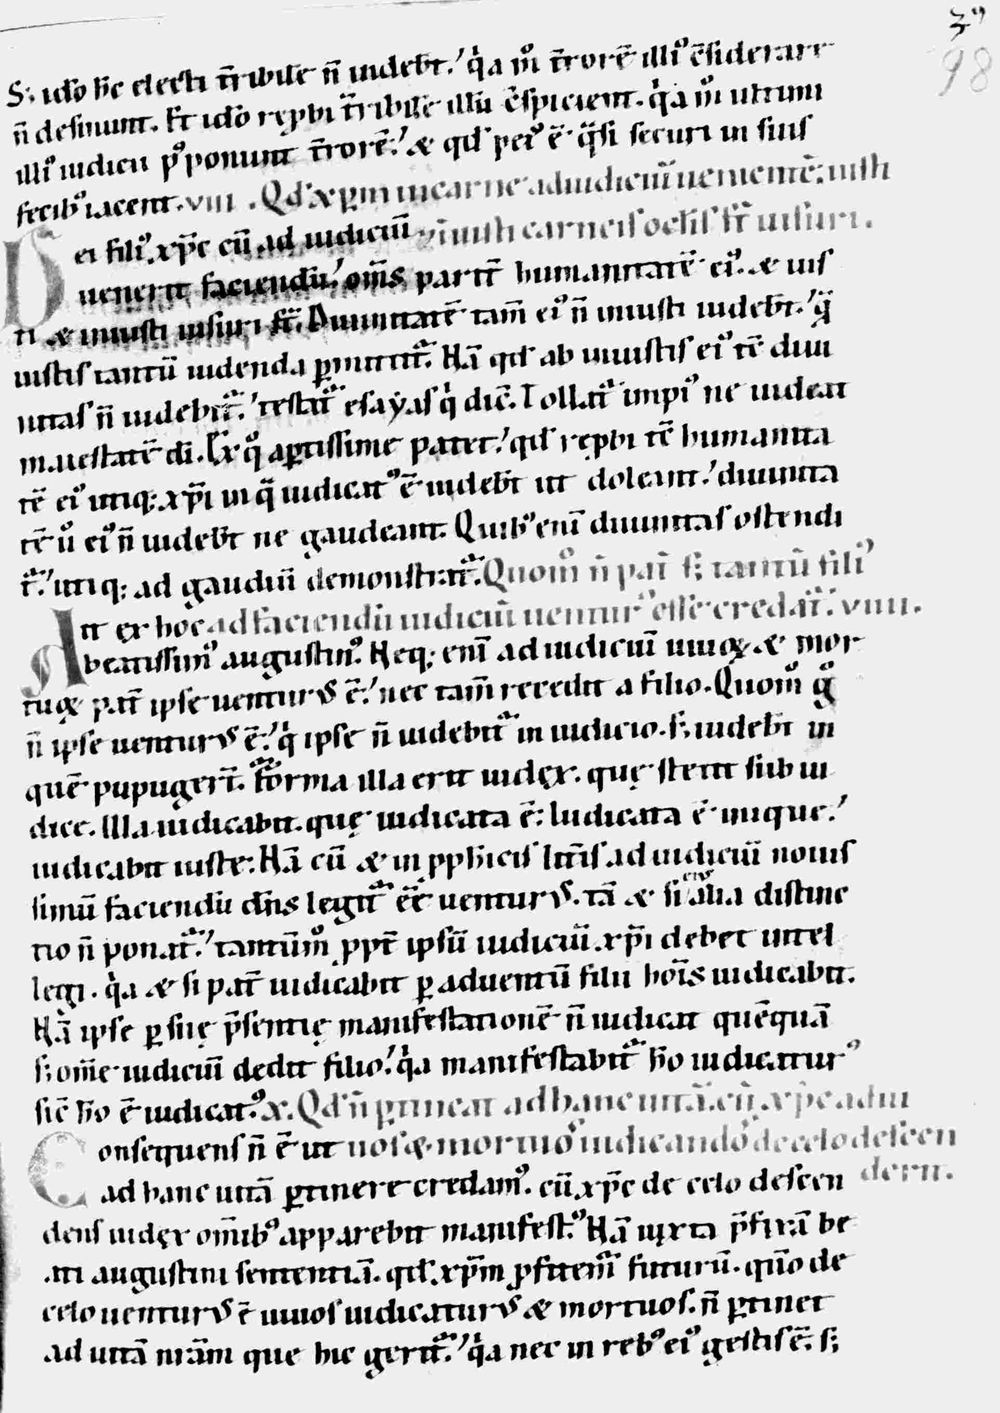 3
98
S; ido h̄c electi t̄ribile n̄ uidebt̄. q̇a m̊ t̄rorē illiꝰ c̄siderare
n̄ desinunt. Et ido rep̄bi t̄ribilē illū c̄spicient. q̇a m̊ ultimi
illiꝰ iudicii p̊ponunt t̄rorē. & qd̄ peiꝰ ē q̄si securi in suis
fecibꝰ iacent. viii. Qd̄ xp̄m in carne ad iudiciū uenientē; iusti
Dei filiꝰ xp̄c cū ad iudiciū & iniusti carneis oc̄lis st̄ uisuri.
uenerit faciendū, om̄s parit̄ humanitatē eiꝰ & ius
ti & iniusti uisuri st̄. Diuinitatē tam̄ eiꝰ n̄ iniusti uidebt̄. q̄
iustis tantū uidenda ꝑmittit᷑. Nā qd̄ ab iniustis eiꝰ tē diui
nitas n̄ uidebit᷑, testat᷑ esayas q̇ dic̄. Tollat᷑ impiꝰ ne uideat
maiestatē dī. Ex q̊ aꝑtissime patet, qd̄ rep̄bi tē humanita
tē eiꝰ utiq; xp̄i in q̄ iudicatꝰ ē uidebt̄ ut doleant, diuinita
tē ů eiꝰ n̄ uidebt̄ ne gaudeant. Quibꝰ enī diuinitas ostendi
t᷑, utiq; ad gaudiū demonstrat᷑. Quom̊ n̄ pat̄ s; tantū filiꝰ
Ait ex hoc ad faciendū iudiciū uenturꝰ esse credat᷑. viiii.
beatissimꝰ augustinꝰ. Neq; enī ad iudiciū uiuoꝝ & mor
tuoꝝ pat̄ ipse uenturus ē, nec tam̄ recedit a filio. Quom̊ g̊
n̄ ipse uenturus ē? q̇ ipse n̄ uidebit᷑ in iudicio. s; uidebt̄ in
quē pupugert̄. Forma illa erit iudex. que stetit sub iu
dice. Illa iudicabit. que iudicata ē; Iudicata ē inique,
iudicabit iuste; Nā cū & in p̄ph̄icis litt̄is ad iudiciū nouis
simū faciendū dn̄s legit᷑ ēē uenturus. tā & si eiꝰ alia distinc
tio n̄ ponat᷑, tantūm̊ ppt̄ ipsū iudiciū xp̄i debet intel
legi. q̇a & si pat̄ iudicabit ꝑ aduentū filii hoīs iudicabit.
Nā ipse ꝑ suę p̄sentię manifestationē n̄ iudicat quēquā
s; om̄e iudiciū dedit filio, q̇a manifestabit᷑ h̄o iudicaturꝰ
sic̄ h̄o ē iudicatꝰ. x. Qd̄ n̄ ꝑtineat ad hanc uitā. cū xp̄c ad iu
Consequens n̄ ē ut uos & mortuos iudicandos de celo descen
ad hanc uitā ꝑtinere credamꝰ. cū xp̄c de celo descen derit.
dens iudex om̄ibꝰ apparebit manifestꝰ. Nā iuxta p̄fatā be
ati augustini sententiā. qd̄ xp̄m ꝓfitem᷑ futurū. qn̄o de
celo uenturus ē uiuos iudicaturus & mortuos. n̄ ꝑtinet
ad uitā nr̄am que hic gerit᷑, q̇a nec in rebꝰ eiꝰ gestis ē. s;